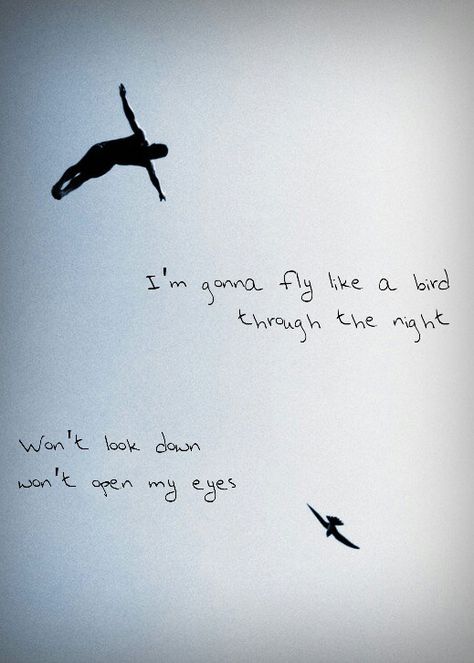 I'm gonna fly like a bird
through the night
Won't look down
won't open my eyes